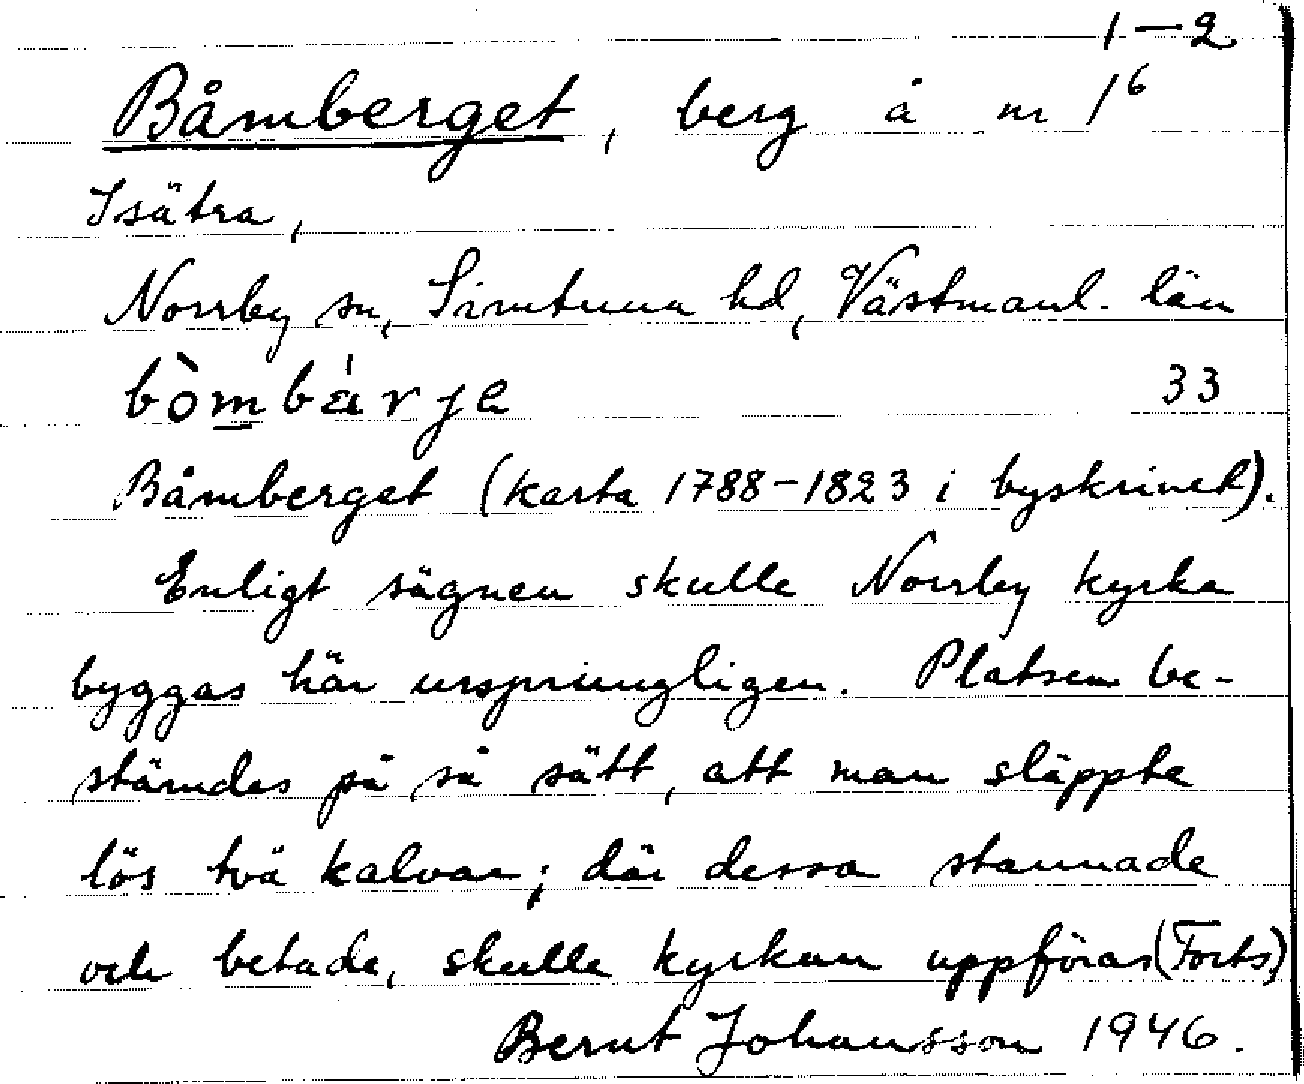 1–2
Båmberget, berg å nr 1⁶
Isätra,
Norrby sn, Simtuna hd, Västmanl. län
bòmbá̈rjɐ 33
Båmberget (karta 1788–1823 i byskrinet).
Enligt sägnen skulle Norrby kyrka
byggas här ursprungligen. Platsen be-
stämdes på så sätt, att man släppte
lös två kalvar; där dessa stannade
och betade, skulle kyrkan uppföras (Forts)
Bernt Johansson 1946.